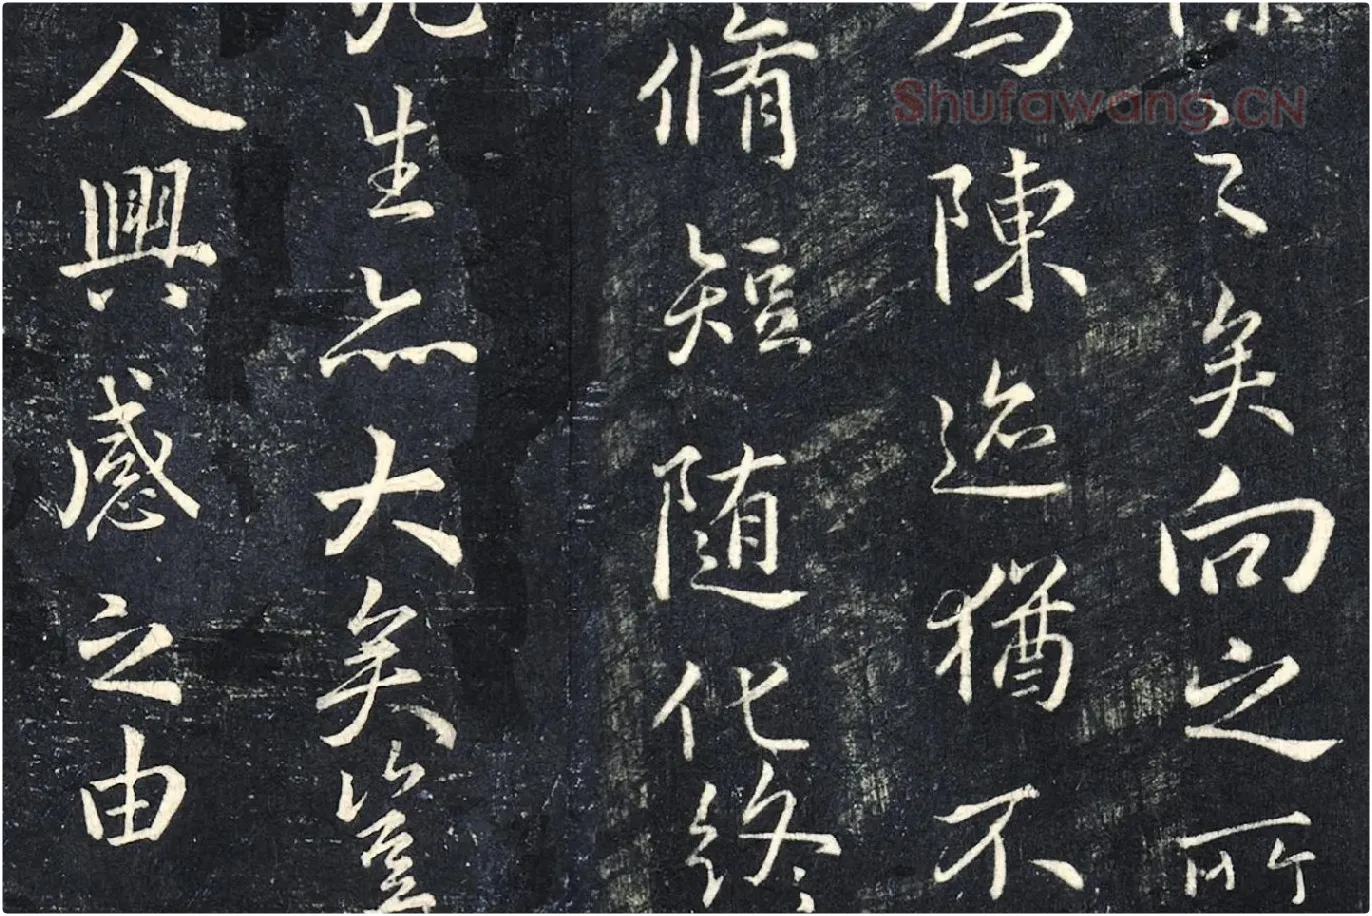 係之矣向之所
為陳迹猶不
脩短随化終
死生亦大矣豈
人興感之由
Shufawang.CN